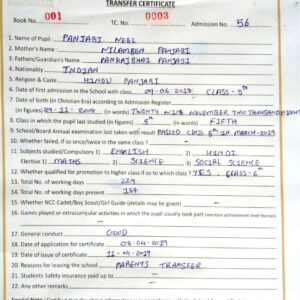 TRANSFER CERTIFICATE
Book No. 001 TC. No. 0003 Admission No. 56
1. Name of Pupil PANJABI NEEL
2. Mother's Name NILAMBEN PANJABI
3. Father's/Guardian's Name PANKAJBHAI PANJABI
4. Nationality INDIAN
5. Religion & Caste HINDU PANJABI
6. Date of first admission in the School with class 09-06-2018, CLASS-5th
7. Date of birth (in Christian Era) according to Admission Register
(in figures) 29-11- (in words) TWENTY NINE NOVEMBER TWO THOUSAND
8. Class in which the pupil last studied (in figures) 5th (in words) FIFTH
9. School/Board Annual examination last taken with result PASSED CLASS 5th IN MARCH-2019
10. Whether failed, if so once/twice in the same class
11. Subjects studied/Compulsory 1) ENGLISH 2) HINDI
Elective 1) MATHS 2) SCIENCE 3) SOCIAL SCIENCE
12. Whether qualified for promotion to higher class if so to which class YES, CLASS-6th
13. Total No. of working days 229
14. Total No. of working days present 187
15. Whether NCC Cadet/Boy Scout/Girl Guide (details may be given)
16. Games played or extracurricular activities in which the pupil usually took part (mention achievement level thereof)
17. General conduct GOOD
18. Date of application for certificate 08-04-2019
19. Date of issue of certificate 11-04-2019
20. Reasons for leaving the school PARENTS TRANSFER
21. Students Safety insurance paid up to
22. Any other remarks